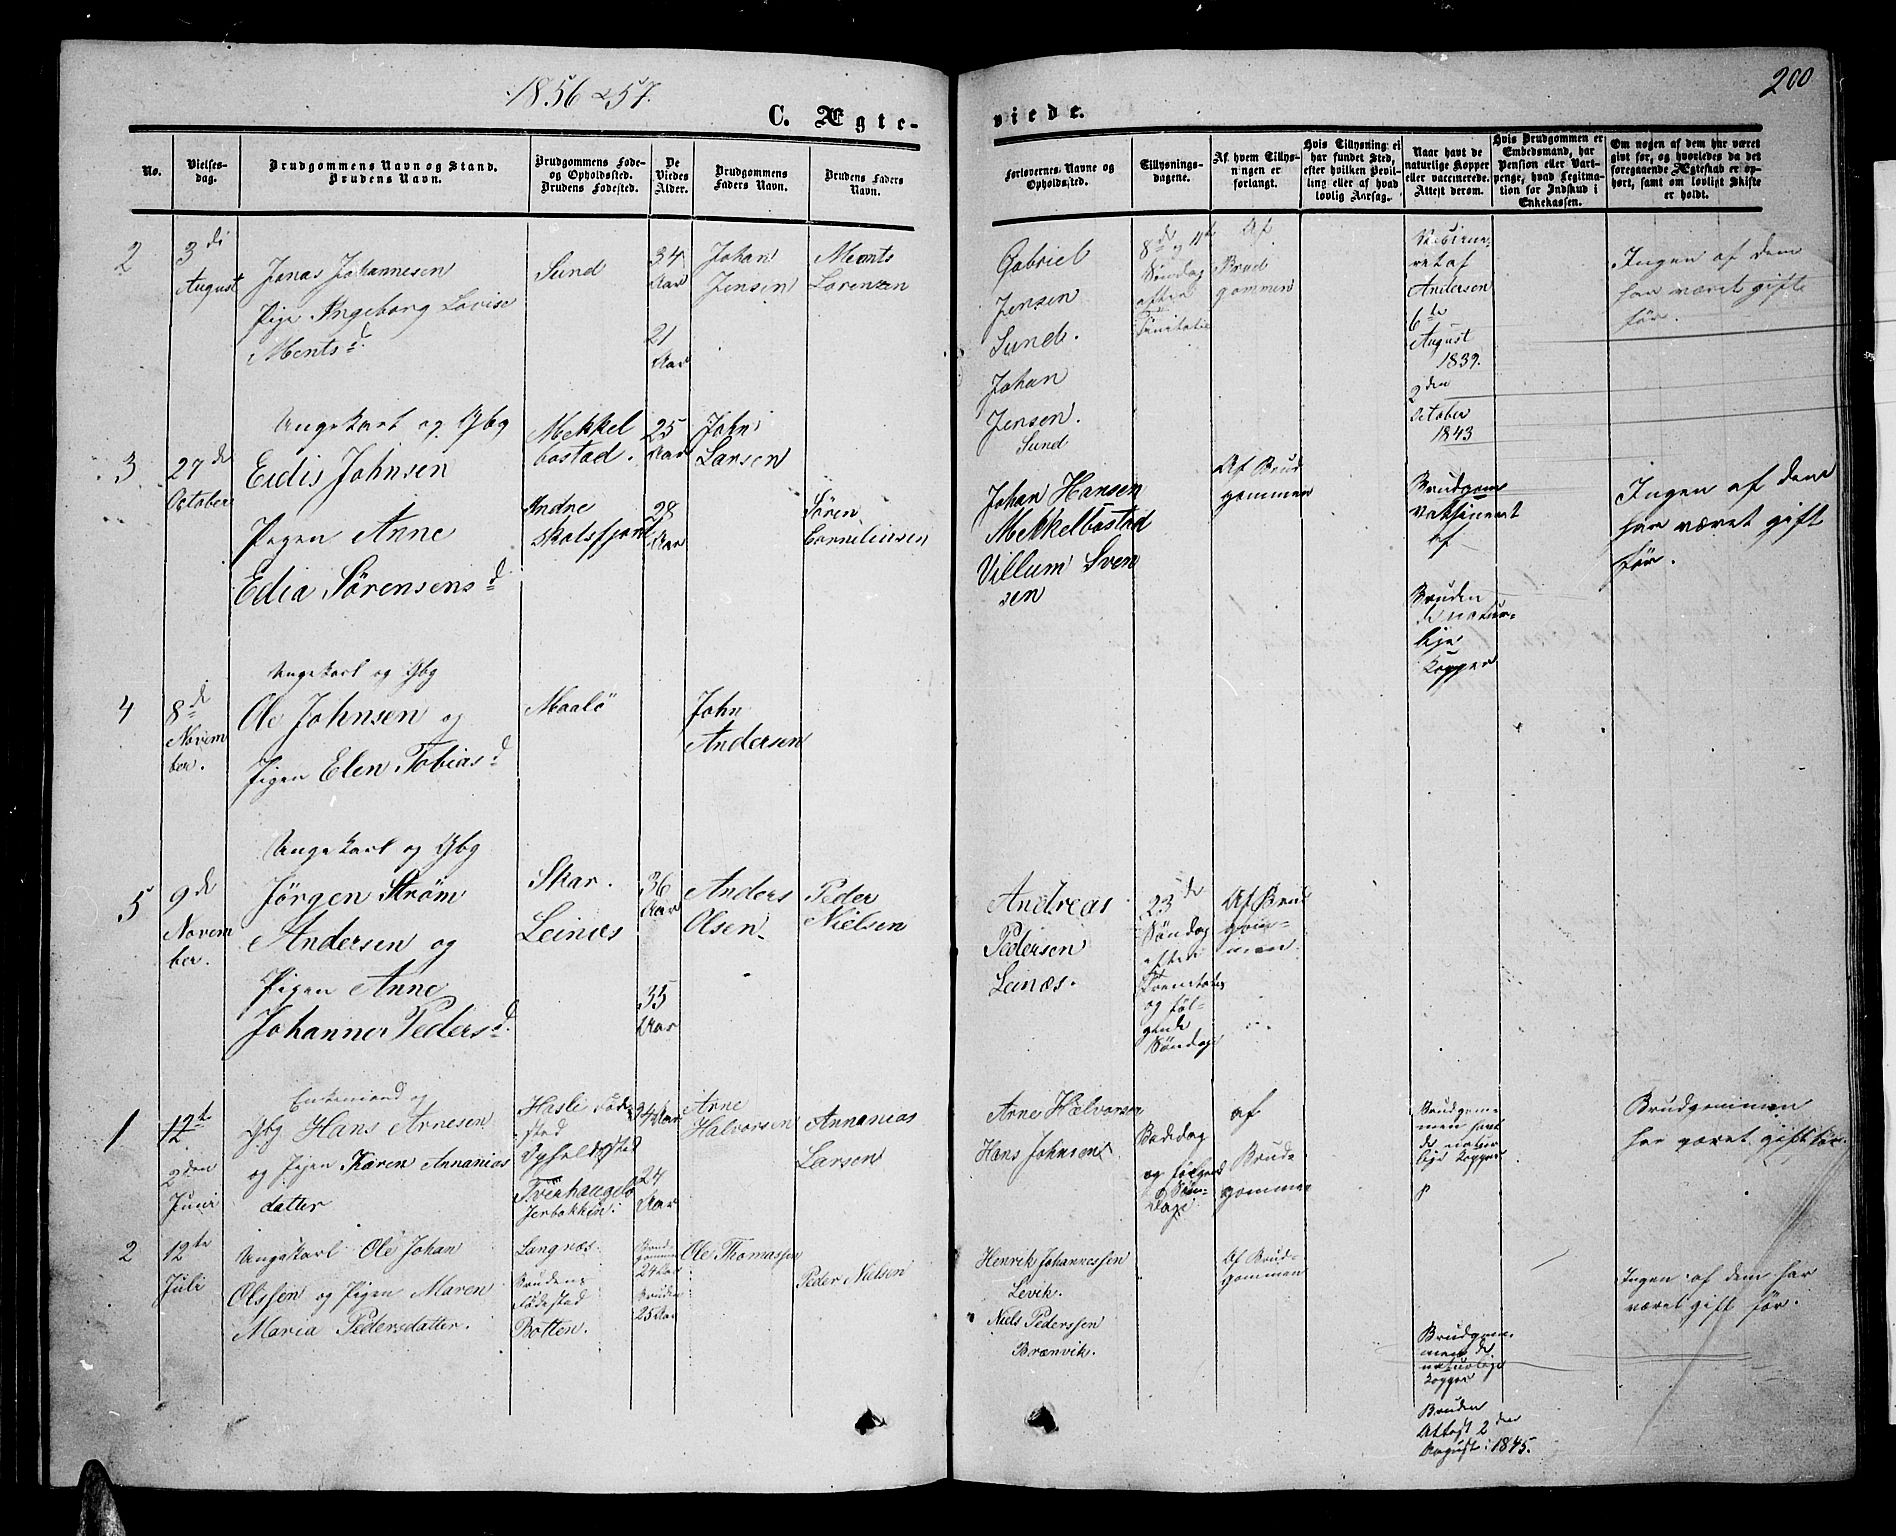 1856 & 57.
200
C. Ægte-
viede.
No.
Vielses-
dag.
Brudgommens Navn og Stand.
Brudens Navn.
Brudgommens Føde-
og Opholdssted.
Brudens Fødested.
De
Viedes
Alder.
Brudgommens
Faders Navn.
Brudens Faders
Navn.
Forlovernes Navne og
Opholdssted.
Tillysnings-
dagene.
Af hvem Tillys-
ningen er
forlangt.
Hvis Tillysning ei
har fundet Sted,
efter hvilken Bevil-
ling eller af hvad
lovlig Aarsag.
Naar havt de
naturlige Kopper
eller vaccinerede.
Attest derom.
Hvis Brudgommen er
Embedsmand, har
Pension eller Vart-
penge, hvad Legitima-
tion for Indskud i
Enkekassen.
Om nogen af dem har været
gift før, og hvorledes da det
foregaaende Ægteskab er op-
hørt, samt om lovligt Skifte
er holdt.
2
3di
August
Jonas Johannesen
Pige Ingeborg Lovise
Mentsd.
Sund
34
Aar
21
Aar
Johan
Jensen
Ments
Lorenzen
Gabriel
Jensen
Sund.
Johan
Jensen.
Sund
8de og 11te
Søndag
efter
Trinitatis
Af
Brud
gommen
ret af
Andersen
6te
August
1839.
2den
October
1843
Ingen af dem
har været gifte
før.
3
27de
October
Ungekarl og Gbg
Eidis Johnsen
Pigen Anne
Edia Sørensensd
Mekkel
bostad.
Andre
Skolsfjord
25
Aar
28
Aar
John
Larsen
Søren
Corneliusen
Johan Hansen
Mekkelbostad
Villum Sven
sen
Af Brud
gommen
Brudgoms
Vaksineret
af
Bruden
de natur-
lige
Kopper
Ingen af dem
har været gift
før.
4
8de
Novem
ber.
Ungekarl og Gbg
Ole Johnsen og
Pigen Elen Tobiasd
Maalø
John
Andersen
5
9de
Novem
ber.
Ungekarl og Gbg
Jørgen Strøm
Andersen og
Pigen Anne
Johanner Pedersd.
Skar.
Leinæs
36
Aar
35
Aar
Anders
Olsen
Peder
Nielsen
Andreas
Pedersen
Leinæs.
23de
Søndag
efter
Trenitatis
og føl-
gende
Søndage
Af Brud
gom-
men.
1
12te
2den
Juni
Enkemand og
Gbg Hans Arnesen
og Pigen Karen Annanias
datter
Hasli Føde
sted
34 Aar
24
Aar
Arne
Halvorsen
Annanias
Larsen
Arne Halvorsen
Hans Johnsen
Bededag
og følgend
Søn-
dage
af
Brud-
gommen
Brudgom-
men havt
de natur
lige Kopper
Brudgommen
har været gift før.
2
12te
Juli
Ungekarl Ole Johan
Olssen og Pigen Maren
Maria Pedersdatter.
Langnæs.
Brudens
Fødestad
Botten.
Brud-
gommen
24 Aar
Bruden
25 Aar
Ole Thomassen
Peder Nielsen
Henrik Johannessen
Levik.
Niels Pederssen
Brænvik.
Af Brud-
gommen
Brudgom-
men de
naturlige
kopper
Bruden
Attest 2den
August: 1845.
Ingen af dem har
været gift før.